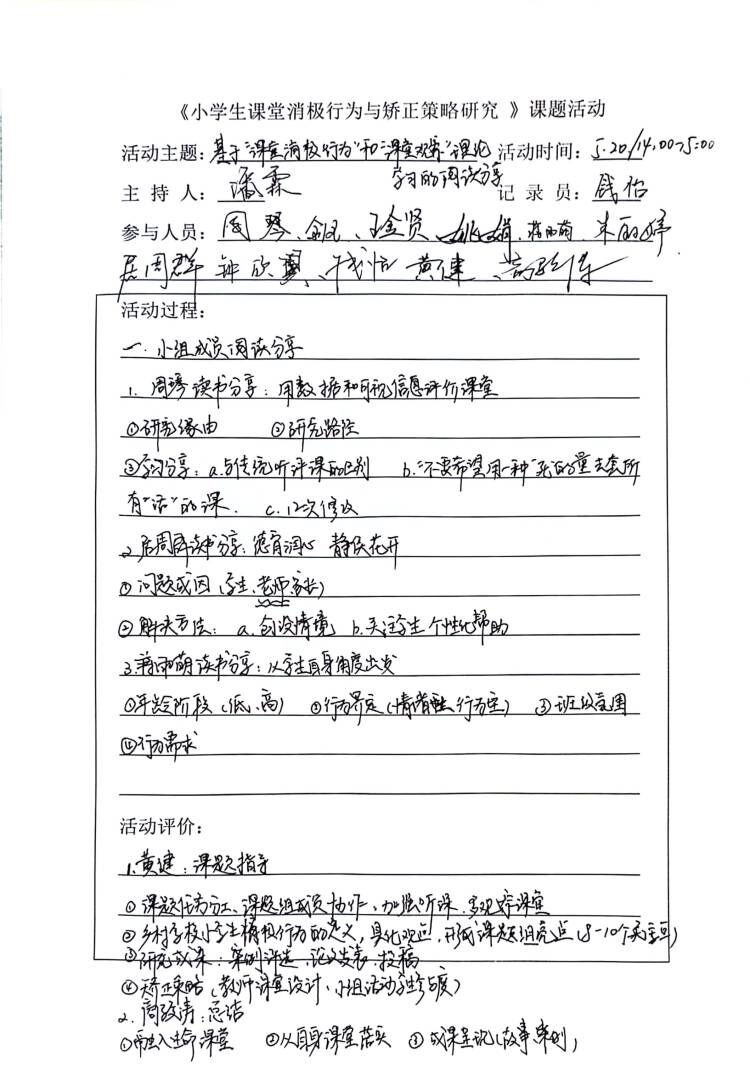 《小学生课堂消极行为与矫正策略研究 》课题活动
活动主题：基于"课堂消极行为"和"课堂观察"理论 活动时间：5.20/14:00-15:00
学习的阅读分享
主 持 人：潘霖 记 录 员：钱怡
参与人员：周琴、王金贤、朱丽婷
居周群 钟欣 黄建
活动过程：
一、小组成员阅读分享
1. 周琴读书分享：用数据和可视信息评价课堂
①研究缘由 ②研究路径
③学习分享：a.与传统听评课的区别 b."不要希望用一种"死"的量去套所
有"活"的课. c.12次修改
2.居周群读书分享：德育润心 静候花开
①问题成因（学生、老师、家长）
②解决方法： a. 创设情境 b.关注学生个性化帮助
3.蒋雨萌读书分享：以学生自身角度出发
①年龄阶段（低、高） ②行为界定（情绪、行为） ③班级氛围
④行为需求
活动评价：
1.黄建：课题指导
①课题任务分工、课题组成员协作、加强听课、多观察课堂
②乡村学校小学生消极行为的定义，具化观点，形成课题组亮点（8-10个）
③研究成果：案例评选、论文发表、投稿
④矫正策略（教师课堂设计、小组活动学生参与度）
2.：总结
①融入生命课堂 ②从自身课堂落实 ③成果（故事、案例）